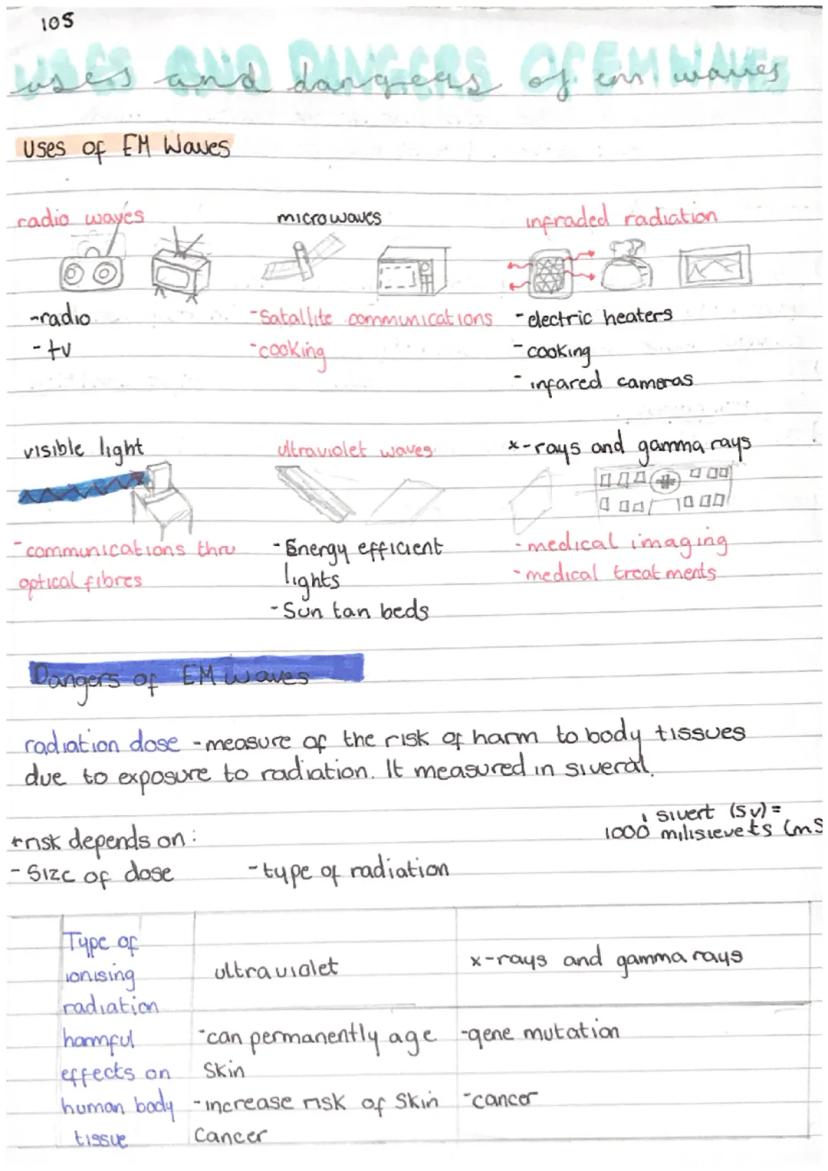 105
USES AND DANGERS OF EM WAVES
uses and dangers of em waves
Uses of EM Waves
radio waves
microwaves
infraded radiation
-radio
-tv
-Satallite communications
-cooking
-electric heaters
-cooking
-infared cameras
visible light
ultraviolet waves
x-rays and gamma rays
-communications thru
optical fibres
-Energy efficient
lights
-Sun tan beds
-medical imaging
-medical treatments
Dangers of EM waves
radiation dose -measure of the risk of harm to body tissues
due to exposure to radiation. It measured in siveral.
1 sivert (Sv) =
1000 milisievets (mS
+risk depends on:
-Size of dose -type of radiation
Type of
ionising
radiation
ultraviolet
x-rays and gamma rays
harmful
effects on
human body
tissue
-can permanently age
Skin
-increase risk of Skin
Cancer
-gene mutation
-cancer